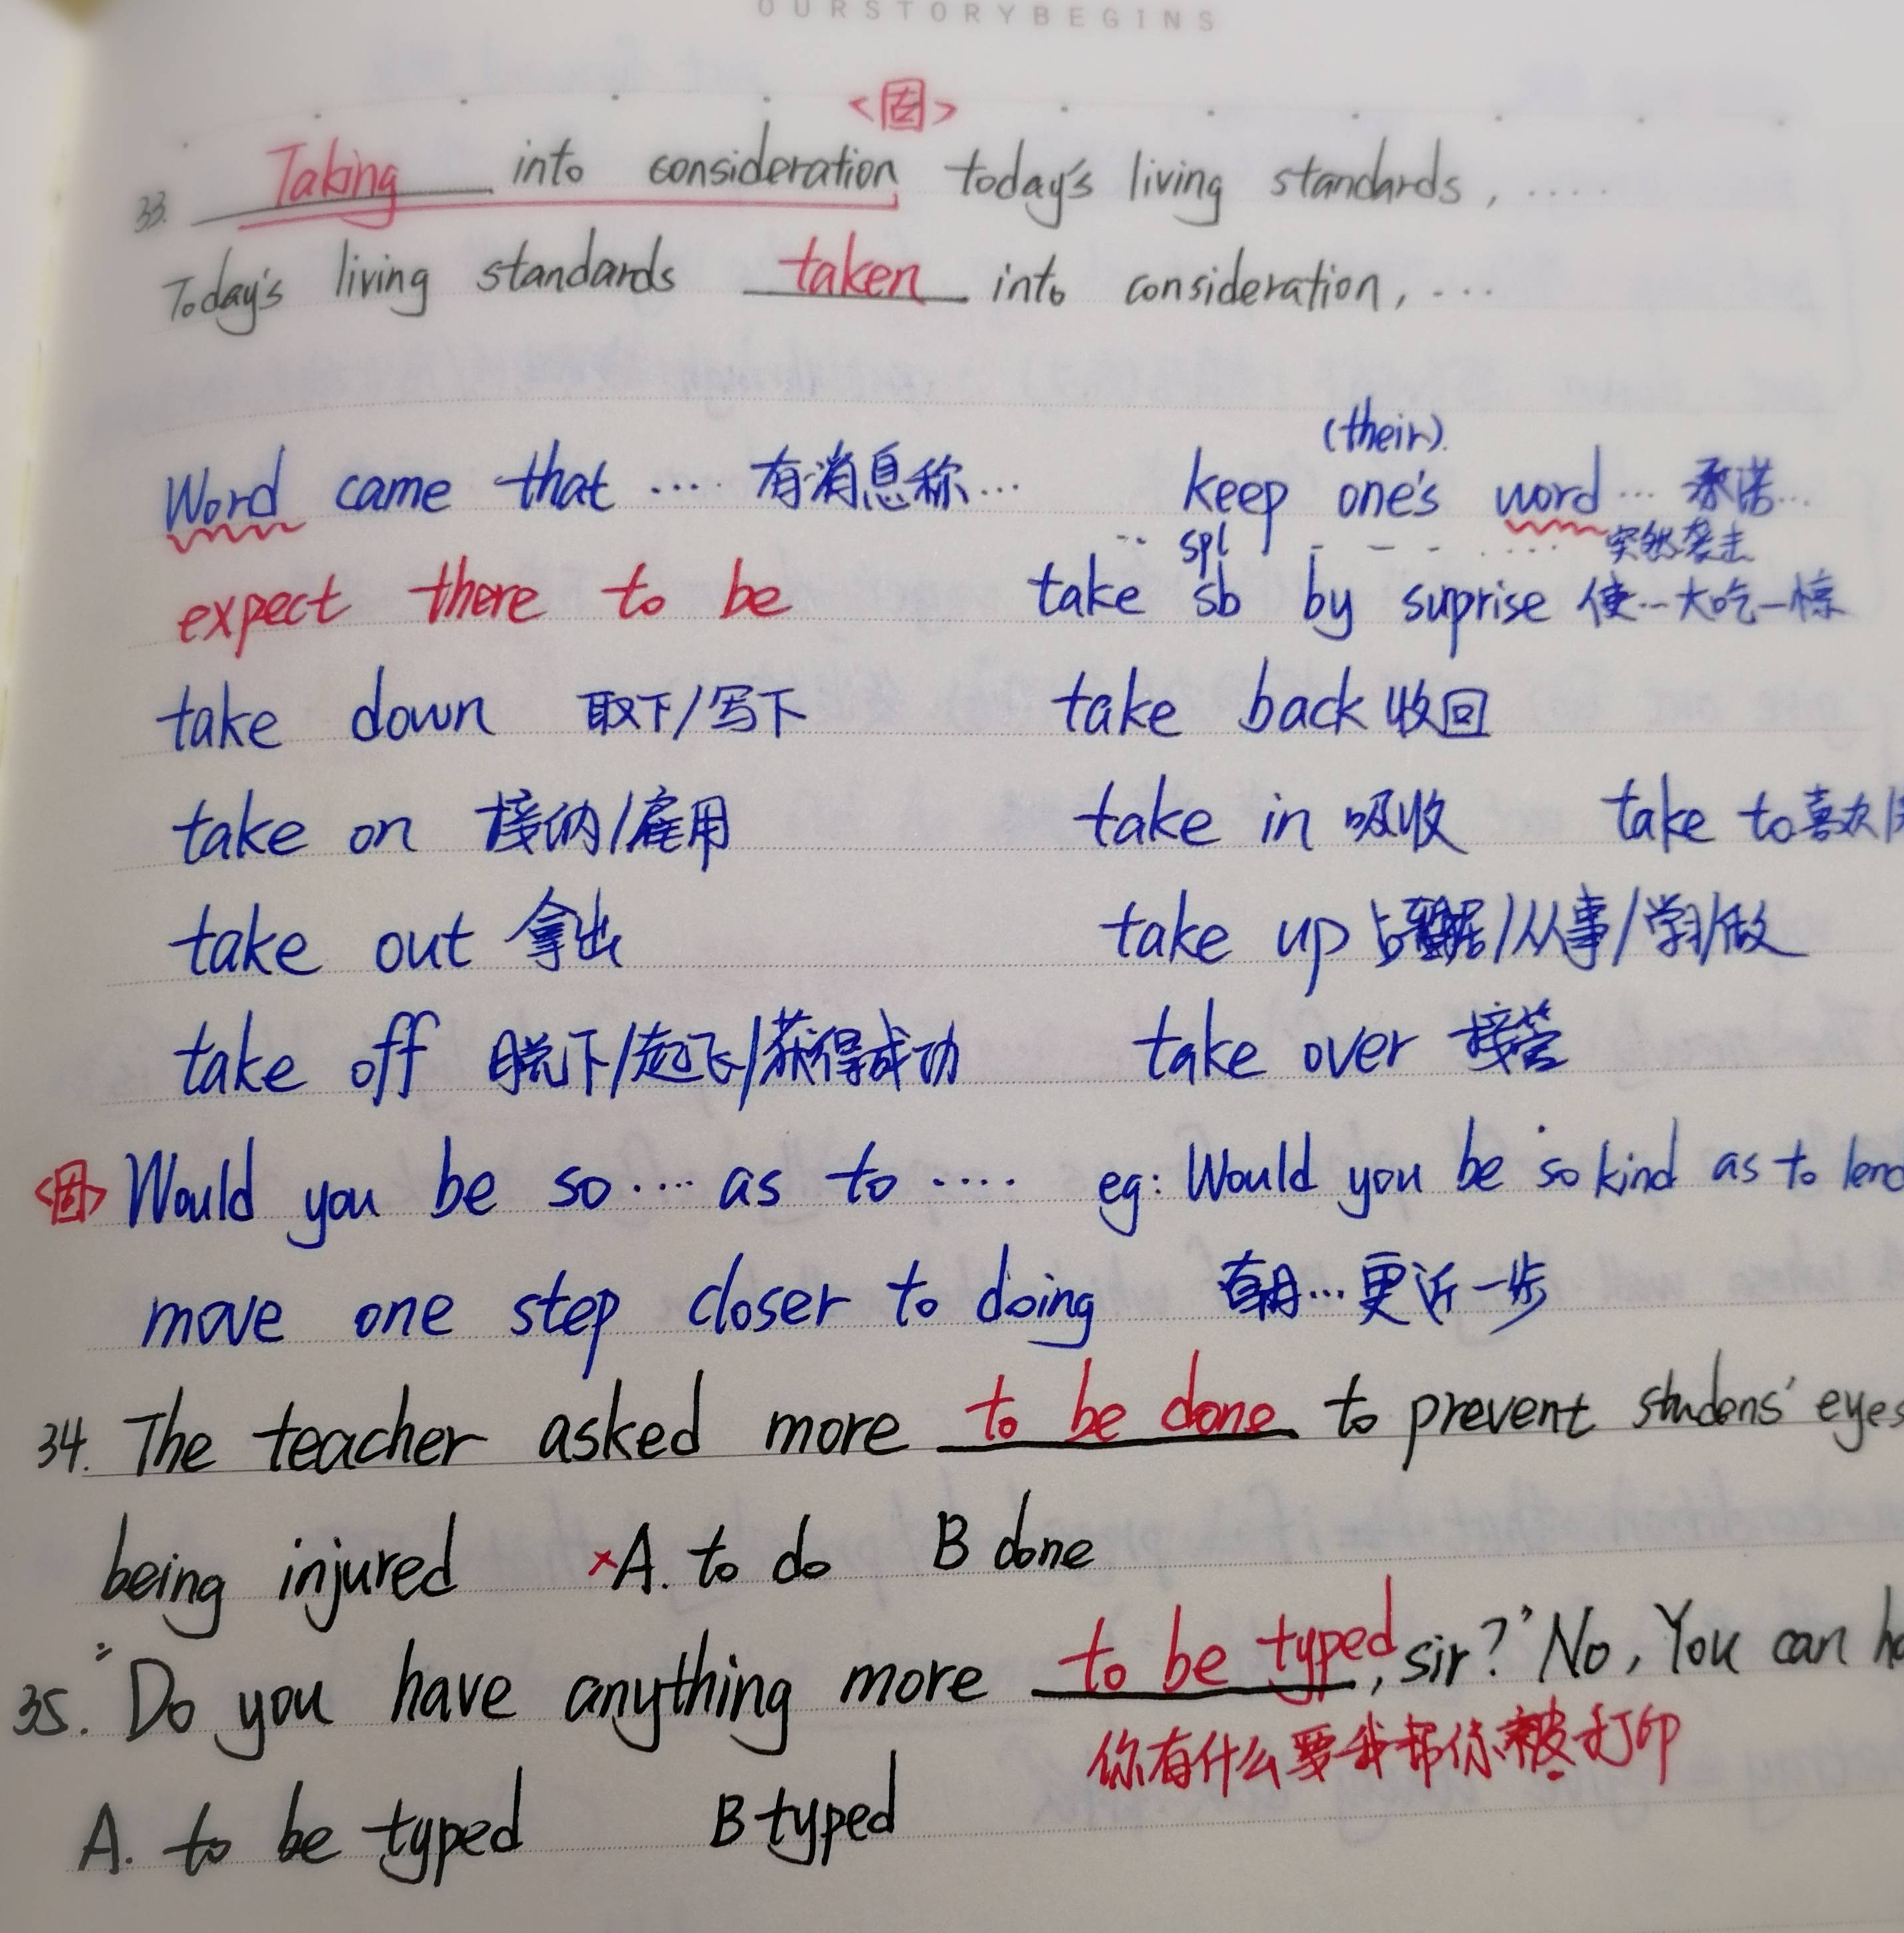 OURSTORYBEGINS
<固>
33. Taking into consideration today's living standards, ....
Today's living standards taken into consideration, ...
(their).
Word came that .... 有消息称... keep one's word... 承诺...
spl 突然袭击
expect there to be take sb by suprise 使...大吃一惊
take down 取下/写下 take back 收回
take on 接纳/雇用 take in 吸收 take to喜欢/
take out 拿出 take up 占据/从事/学习/做
take off 脱下/起飞/获得成功 take over 接管
<固> Would you be so.... as to .... eg: Would you be so kind as to lend
move one step closer to doing 朝...更近一步
34. The teacher asked more to be done to prevent studens' eyes
being injured ×A. to do B done
35. "Do you have anything more to be typed, sir?" No, You can ha
你有什么要我帮你被打印
A. to be typed B typed